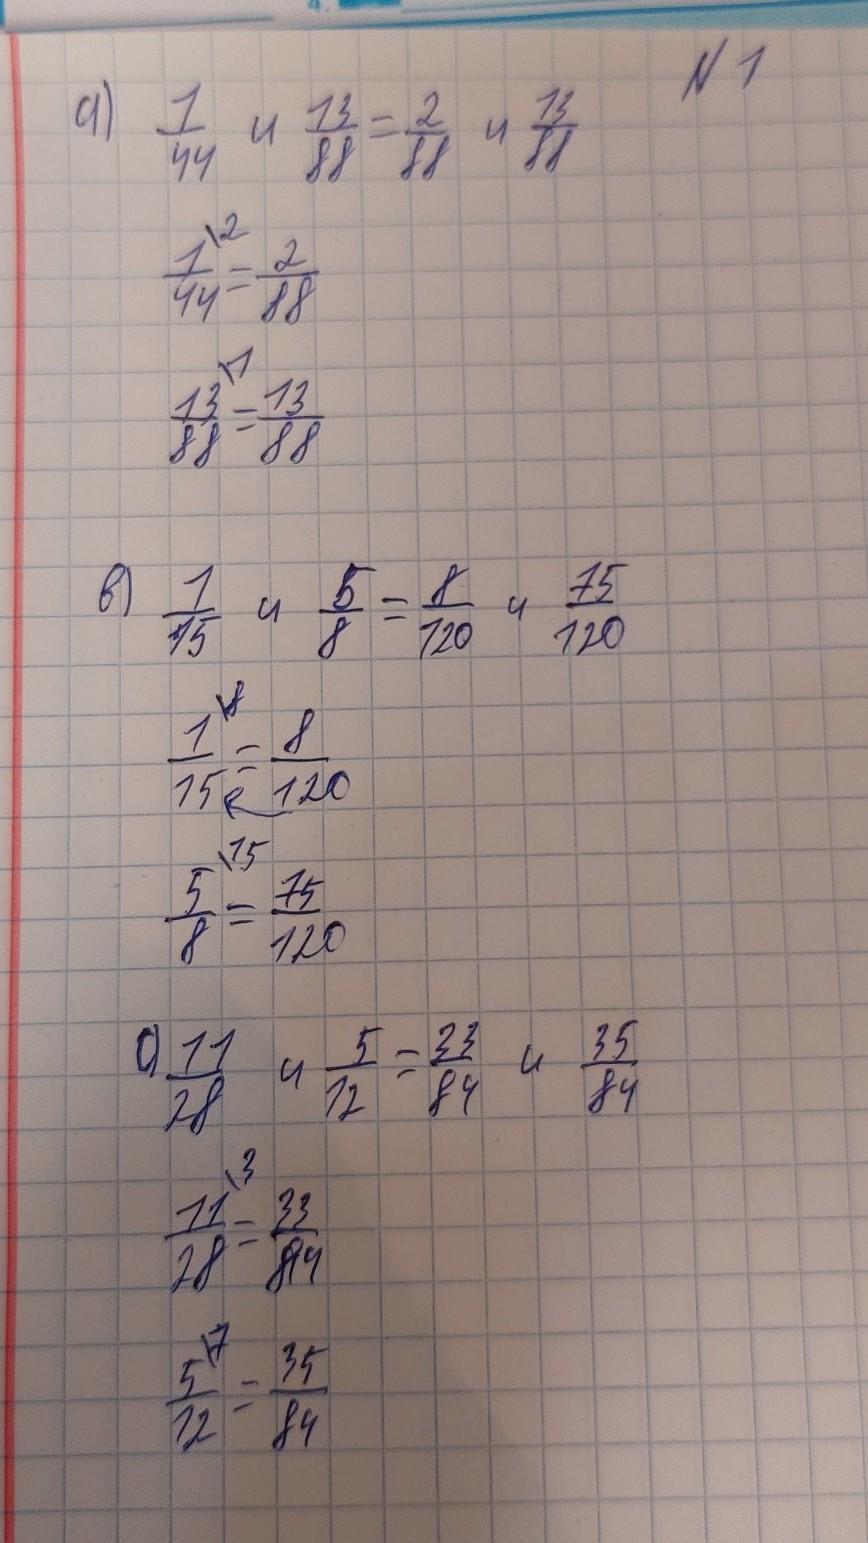 N 1
а) 1/44 и 13/88 = 2/88 и 13/88
1\2/44 = 2/88
13\1/88 = 13/88
в) 1/15 и 5/8 = 8/120 и 75/120
1\8/15 = 8/120
5\15/8 = 75/120
с) 11/28 и 5/12 = 33/84 и 35/84
11\3/28 = 33/84
5\7/12 = 35/84